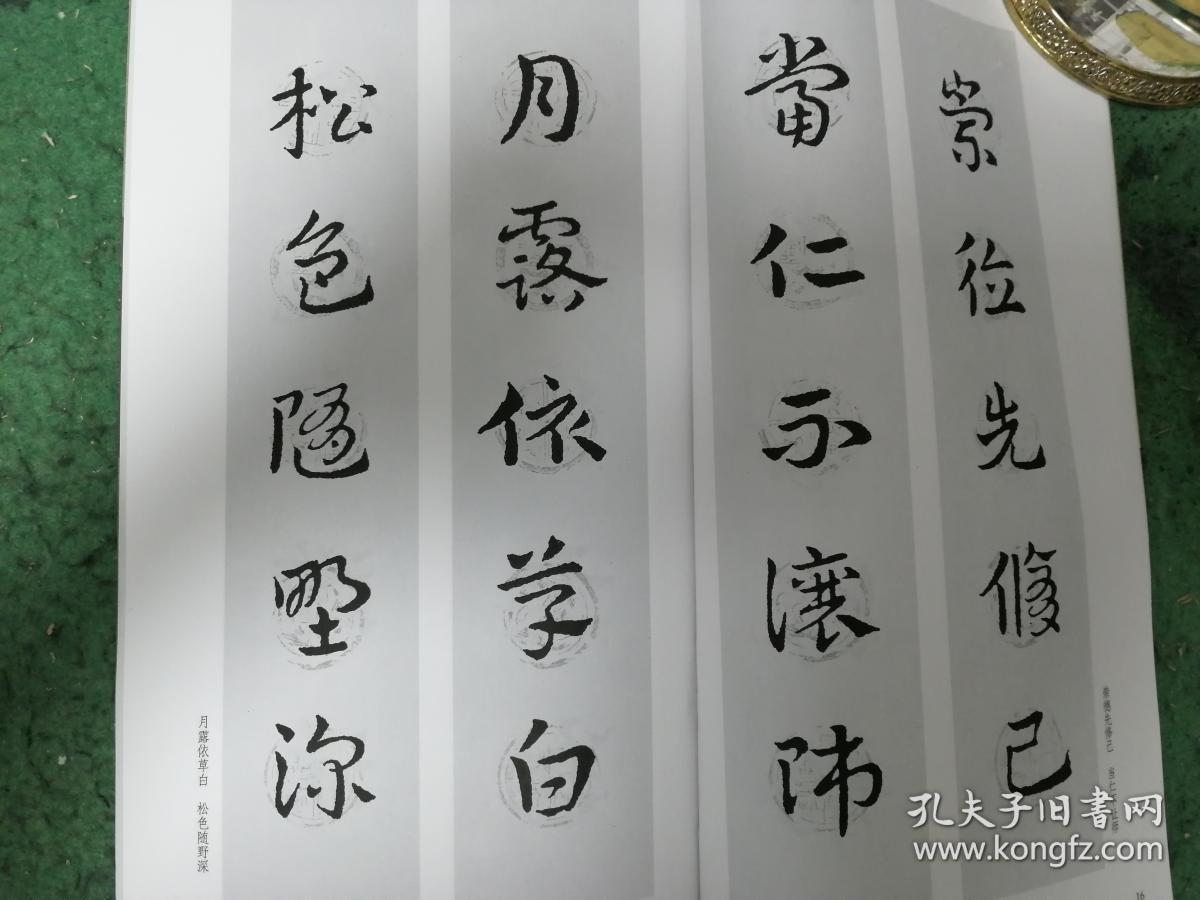 崇德先修己
當仁不讓師
崇德先修己 当仁不让师
16
月露依草白
松色隨野深
月露依草白 松色随野深
孔夫子旧书网
www.kongfz.com